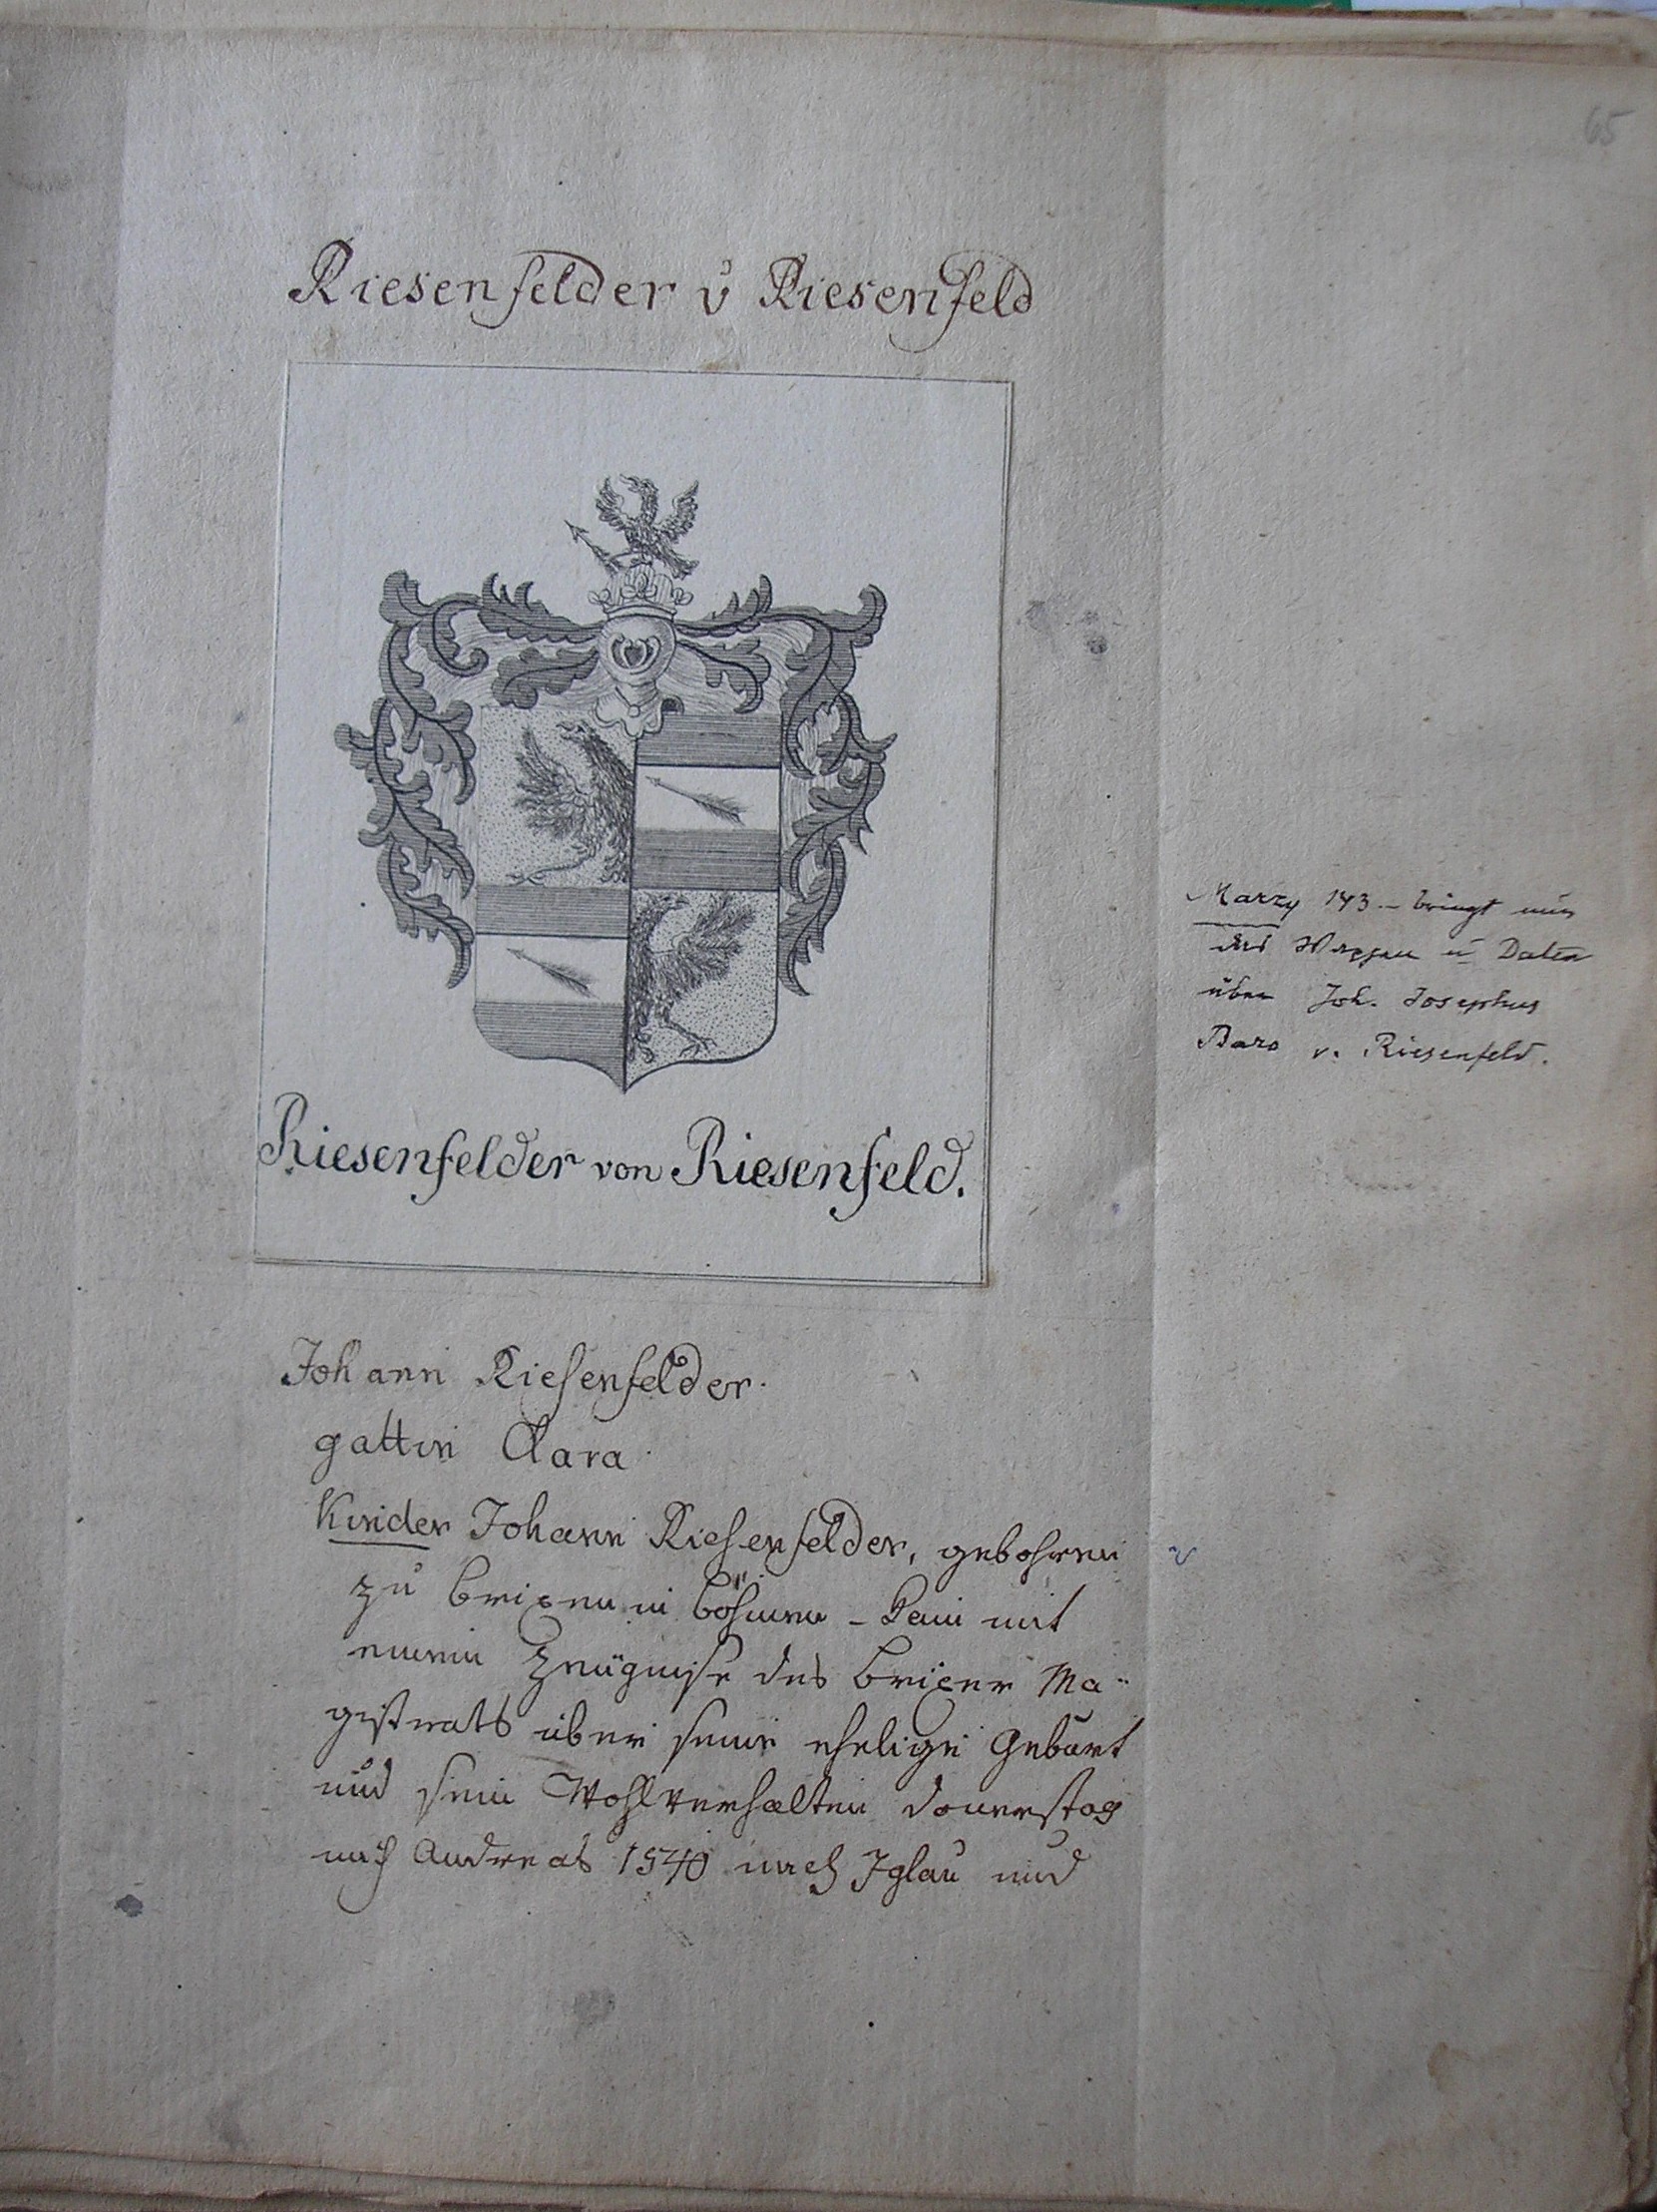 65
Riesenfelder v Riesenfeld
Riesenfelder von Riesenfeld.
Marzy 143 – bringt nur
das Wappen u Daten
über Joh. Josephus
Baro v. Riesenfeld.
Johann Riesenfelder.
gattin Clara.
Kinder Johann Riesenfelder, gebohren
zu Brixen in Böhmen – kam mit
einem Zeugnisse des Brixer Ma-
gistrats über seine ehelige Geburt
und sein Wohlverhalten Donerstag
nach Andreas 1540 nach Iglau und